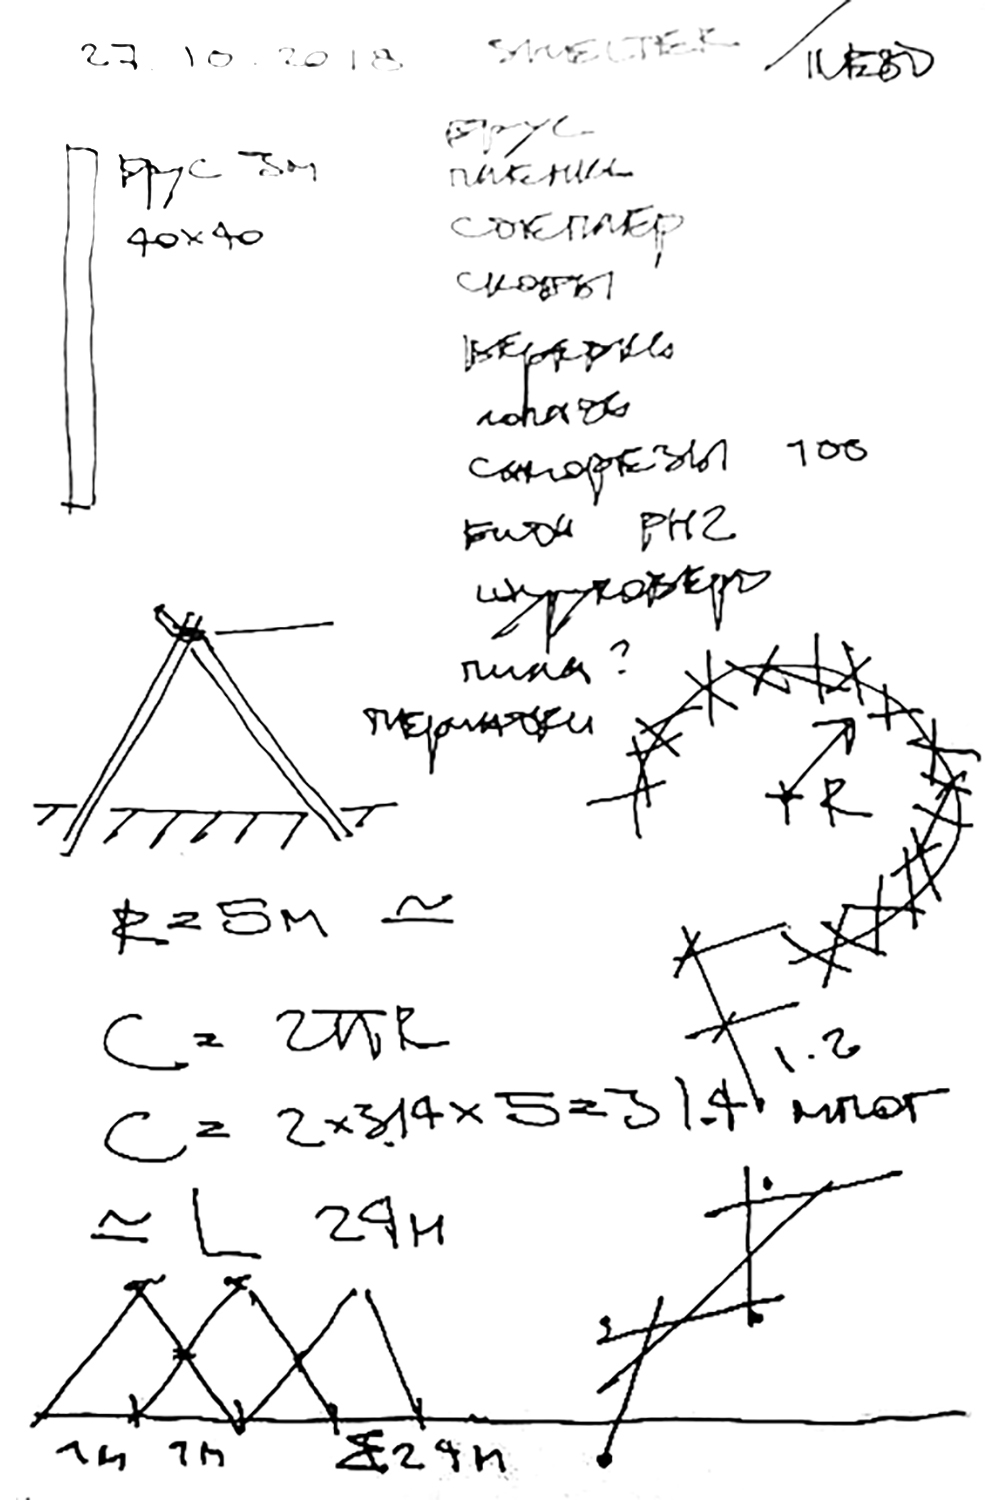 27.10.2018 SHELTER
брус 3м
40x40
брус
пленка
степлер
скобы
веревки
лопата
саморезы 100
биты PH2
шуруповерт
пила?
перчатки
R
R=5м ≃
C= 2πR
1.2
C= 2x3.14x5=31.4
≃ L 24м
1м 1м Σ24м